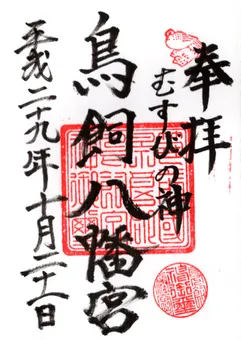 奉拝
むすびの神
鳥飼八幡宮
平成二十九年十月二十一日